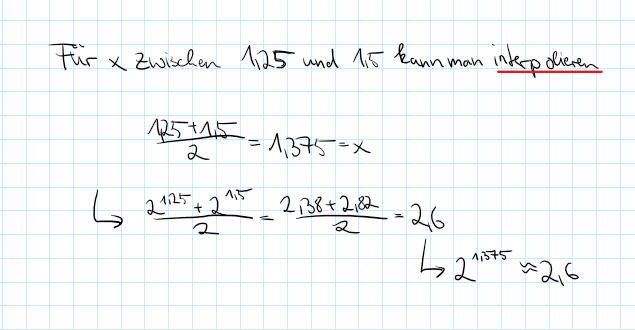 Für x zwischen 1,25 und 1,5 kann man interpolieren
(1,25+1,5)/2 = 1,375 = x
↳ (2^1,25 + 2^1,5)/2 = (2,38+2,82)/2 = 2,6
↳ 2^1,375 ≈ 2,6